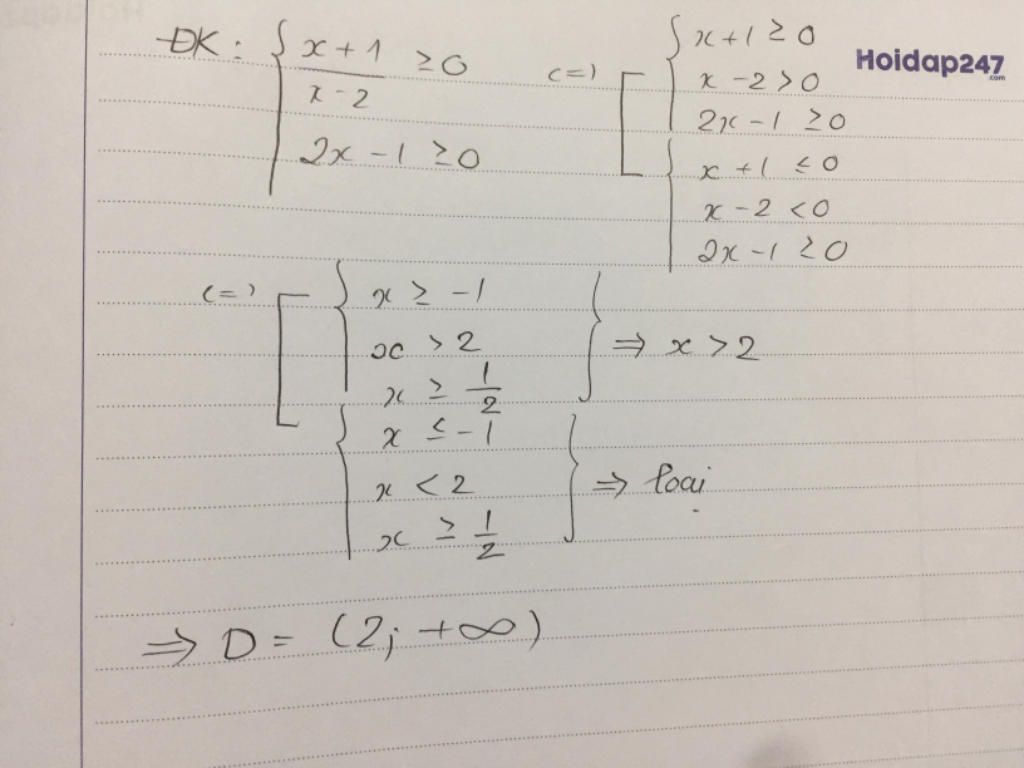 ĐK: { (x + 1)/(x - 2) ≥ 0
2x - 1 ≥ 0
<=> [ { x + 1 ≥ 0
x - 2 > 0
2x - 1 ≥ 0
{ x + 1 ≤ 0
x - 2 < 0
2x - 1 ≥ 0
Hoidap247.com
<=> [ { x ≥ -1
x > 2
x ≥ 1/2 } ⇒ x > 2
{ x ≤ -1
x < 2
x ≥ 1/2 } ⇒ loại
⇒ D = (2; +∞)